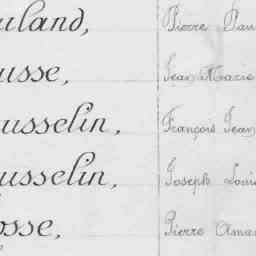 uland, Pierre Pau
usse, Jean Marie
usselin, François Jean
usselin, Joseph Loui
osse, Pierre Ama